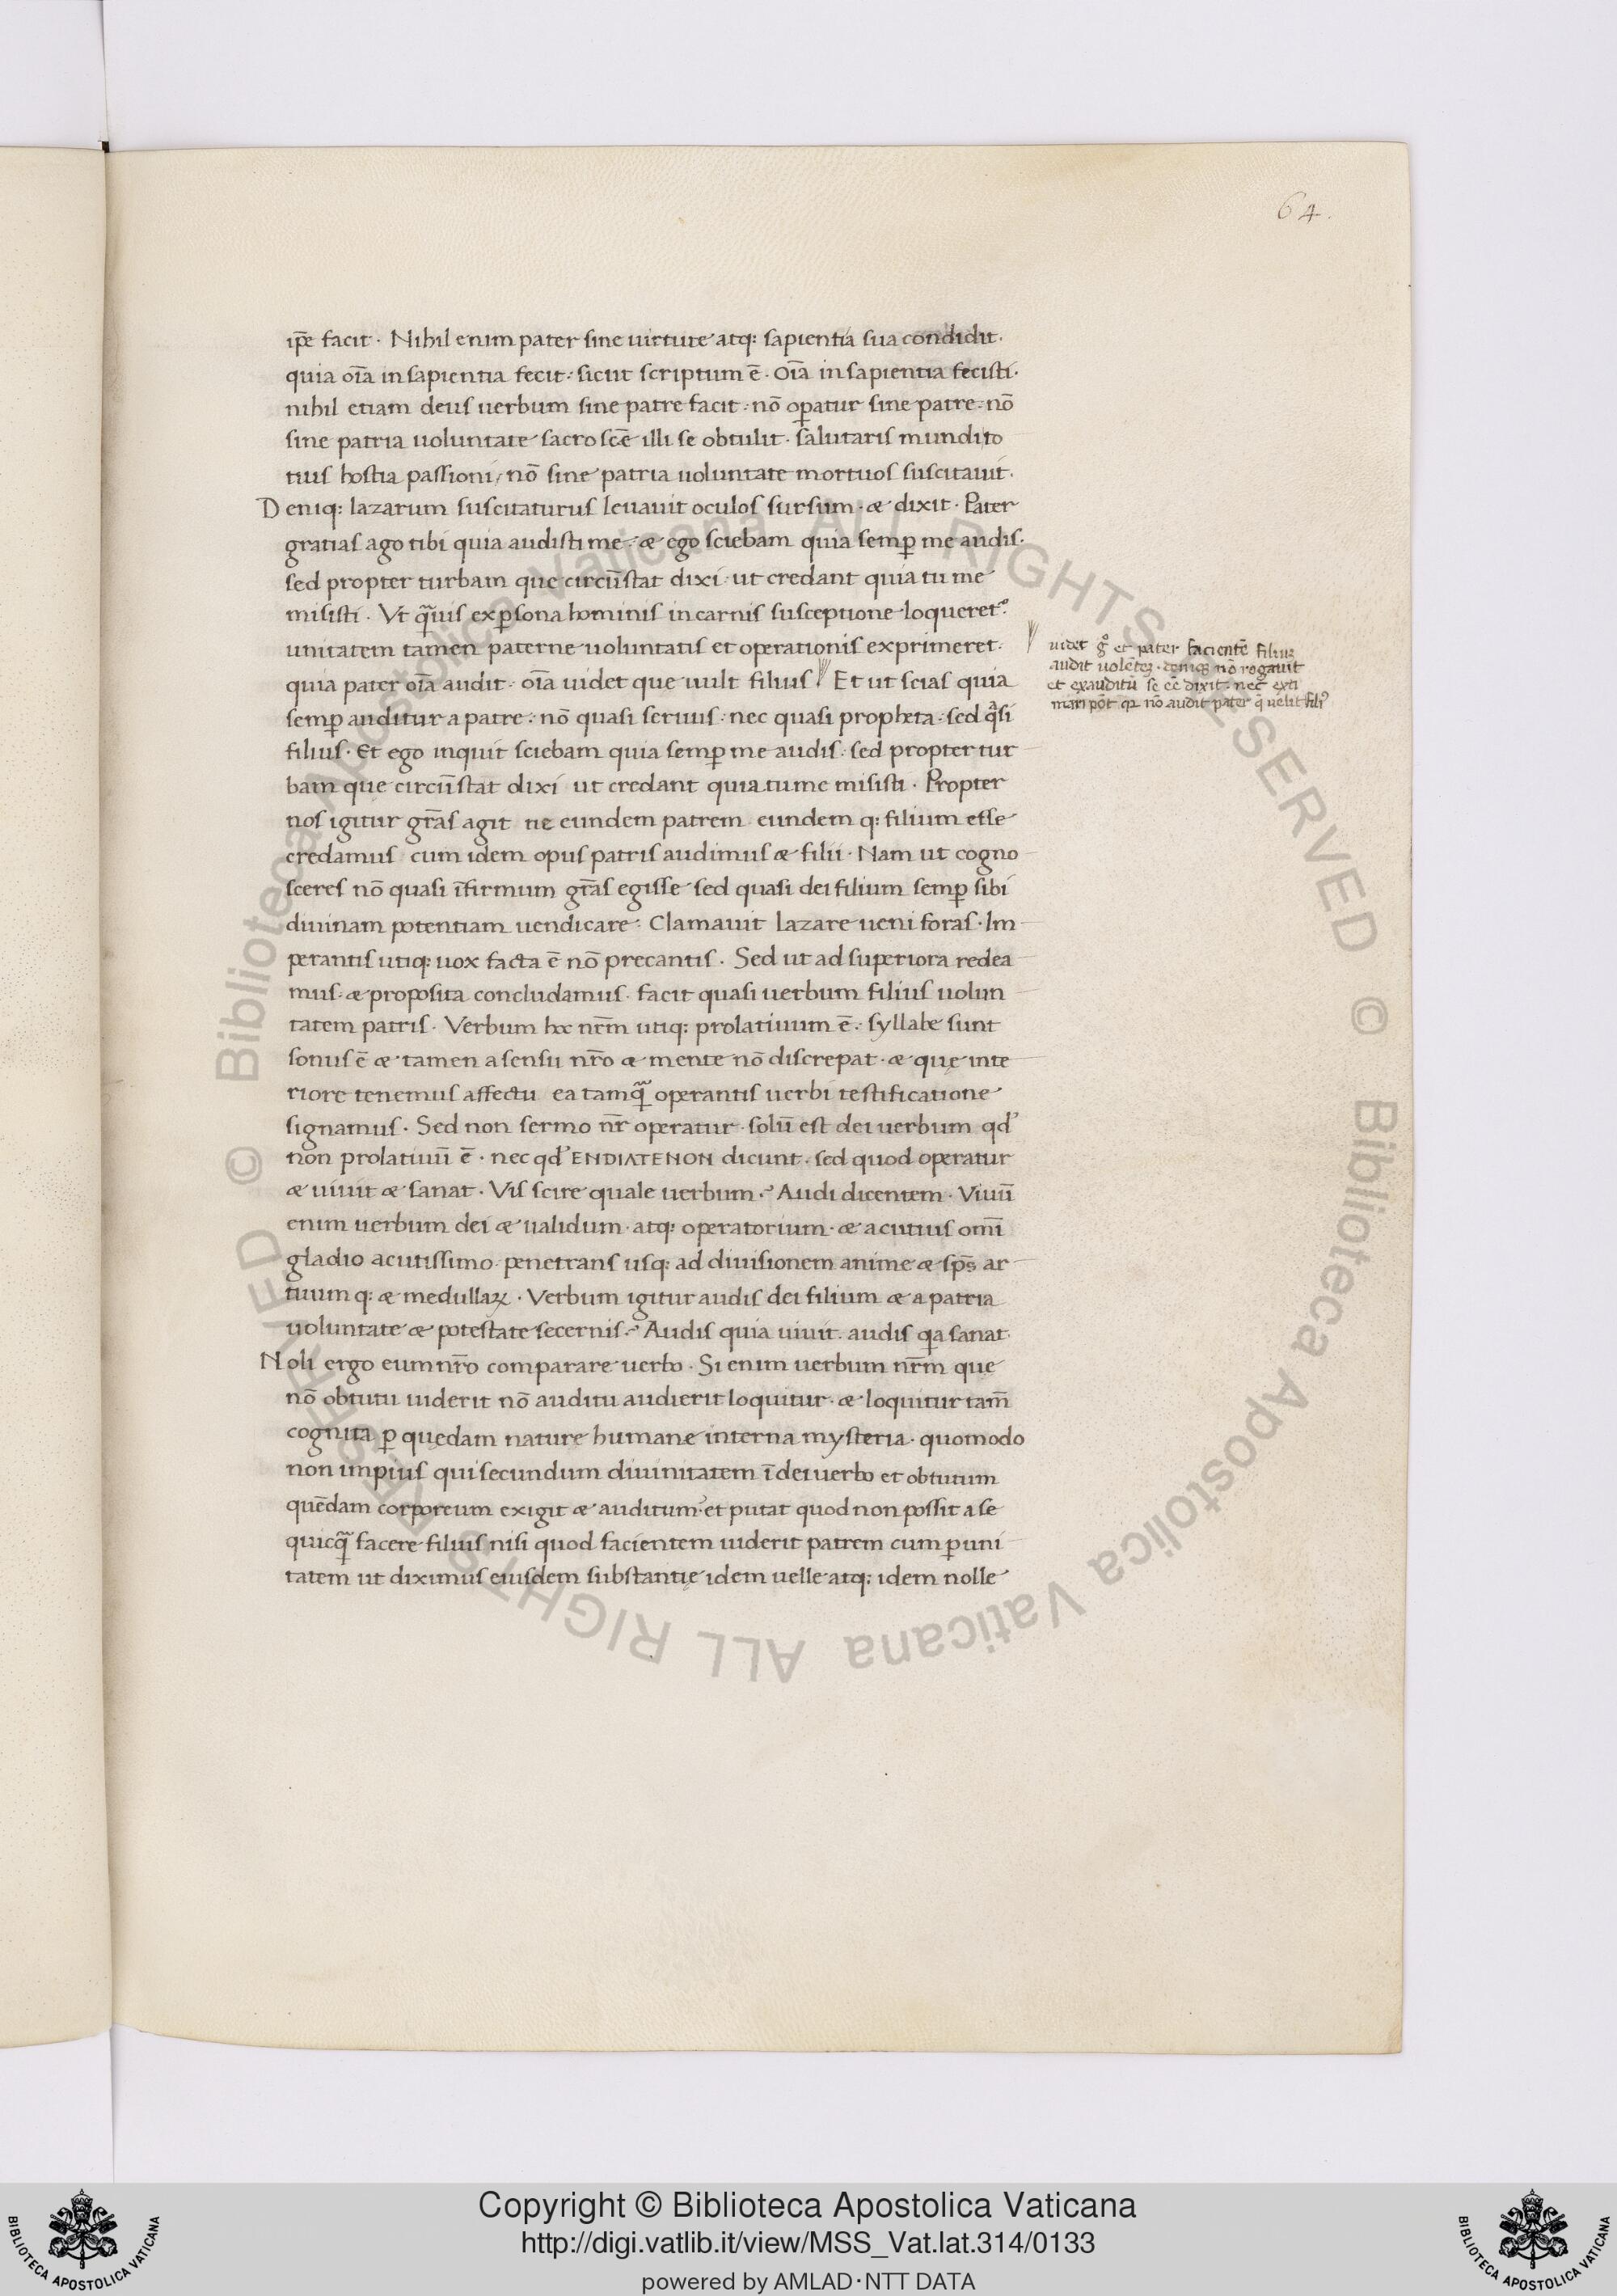 64.
ip̄e facit · Nihil enim pater sine uirtute atq: sapientia sua condidit.
quia oīa in sapientia fecit: sicut scriptum ē · Oīa in sapientia fecisti.
nihil etiam deus uerbum sine patre facit: nō op̱atur sine patre: nō
sine patria uoluntate sacro scē illi se obtulit · salutaris mundi to
tius hostia passioni, nō sine patria uoluntate mortuos suscitauit.
Deniq: lazarum suscitaturus leuauit oculos sursum · æ dixit · Pater
gratias ago tibi quia audisti me: æ ego sciebam quia semp̱ me audis.
sed propter turbam que circūstat dixi · ut credant quia tu me
misisti · Vt q̄uis ex p̱sona hominis in carnis susceptione loqueret᷑
unitatem tamen paterne uoluntatis et operationis exprimeret.
quia pater oīa audit: oīa uidet que uult filius Et ut scias quia
semp̱ auditur a patre: nō quasi seruus: nec quasi propheta: sed q̄si
filius · Et ego inquit sciebam quia semp̱ me audis: sed propter tur
bam que circūstat dixi ut credant quia tu me misisti · Propter
nos igitur gr̄as agit ne eundem patrem eundem q: filium esse
credamus cum idem opus patris audimus æ filii · Nam ut cogno
sceres nō quasi īfirmum gr̄as egisse sed quasi dei filium semp̱ sibi
diuinam potentiam uendicare: Clamauit lazare ueni foras · Im
perantis utiq: uox facta ē nō precantis · Sed ut ad superiora redea
mus: æ proposita concludamus · facit quasi uerbum filius uolun
tatem patris · Verbum hoc nr̄m utiq: prolatiuum ē: syllabe sunt
sonus ē æ tamen a sensu nr̄o æ mente nō discrepat · æ quę inte
riore tenemus affectu ea tamq̄ operantis uerbi testificatione
signamus · Sed non sermo nr̄ operatur · solū est dei uerbum qd᾽
non prolatiuū ē · nec qd᾽ ENDIATENON dicunt · sed quod operatur
æ uiuit æ sanat · Vis scire quale uerbum? Audi dicentem · Viuū
enim uerbum dei æ ualidum · atq: operatorium · æ acutius omī
gladio acutissimo · penetrans usq: ad diuisionem anime æ sp̄s ar
tuum q: æ medullaꝝ · Verbum igitur audis dei filium æ a patria
uoluntate æ potestate secernis? Audis quia uiuit. audis qa sanat.
Noli ergo eum nr̄o comparare uerbo · Si enim uerbum nr̄m que
nō obtutu uiderit nō auditu audierit loquitur · æ loquitur tam̄
cognita p̱ quędam nature humane interna mysteria · quomodo
non impius qui secundum diuinitatem ī dei uerbo et obtutum
quēdam corporeum exigit æ auditum: et putat quod non possit a se
quicq̄ facere filius nisi quod facientem uiderit patrem cum p̱ uni
tatem ut diximus eiusdem substantię idem uelle atq: idem nolle
uidet g° et pater facientē filiuꝫ
audit uolēteꝫ · deniqꝫ nō rogauit
et exauditū se eē dixit · nec exti
mari pōt qꝛ nō audit pater q̄ uelit fili᾽
© Biblioteca Apostolica Vaticana ALL RIGHTS RESERVED © Biblioteca Apostolica Vaticana ALL RIGHTS RESERVED
Copyright © Biblioteca Apostolica Vaticana
http://digi.vatlib.it/view/MSS_Vat.lat.314/0133
powered by AMLAD·NTT DATA
BIBLIOTECA APOSTOLICA VATICANA
BIBLIOTECA APOSTOLICA VATICANA